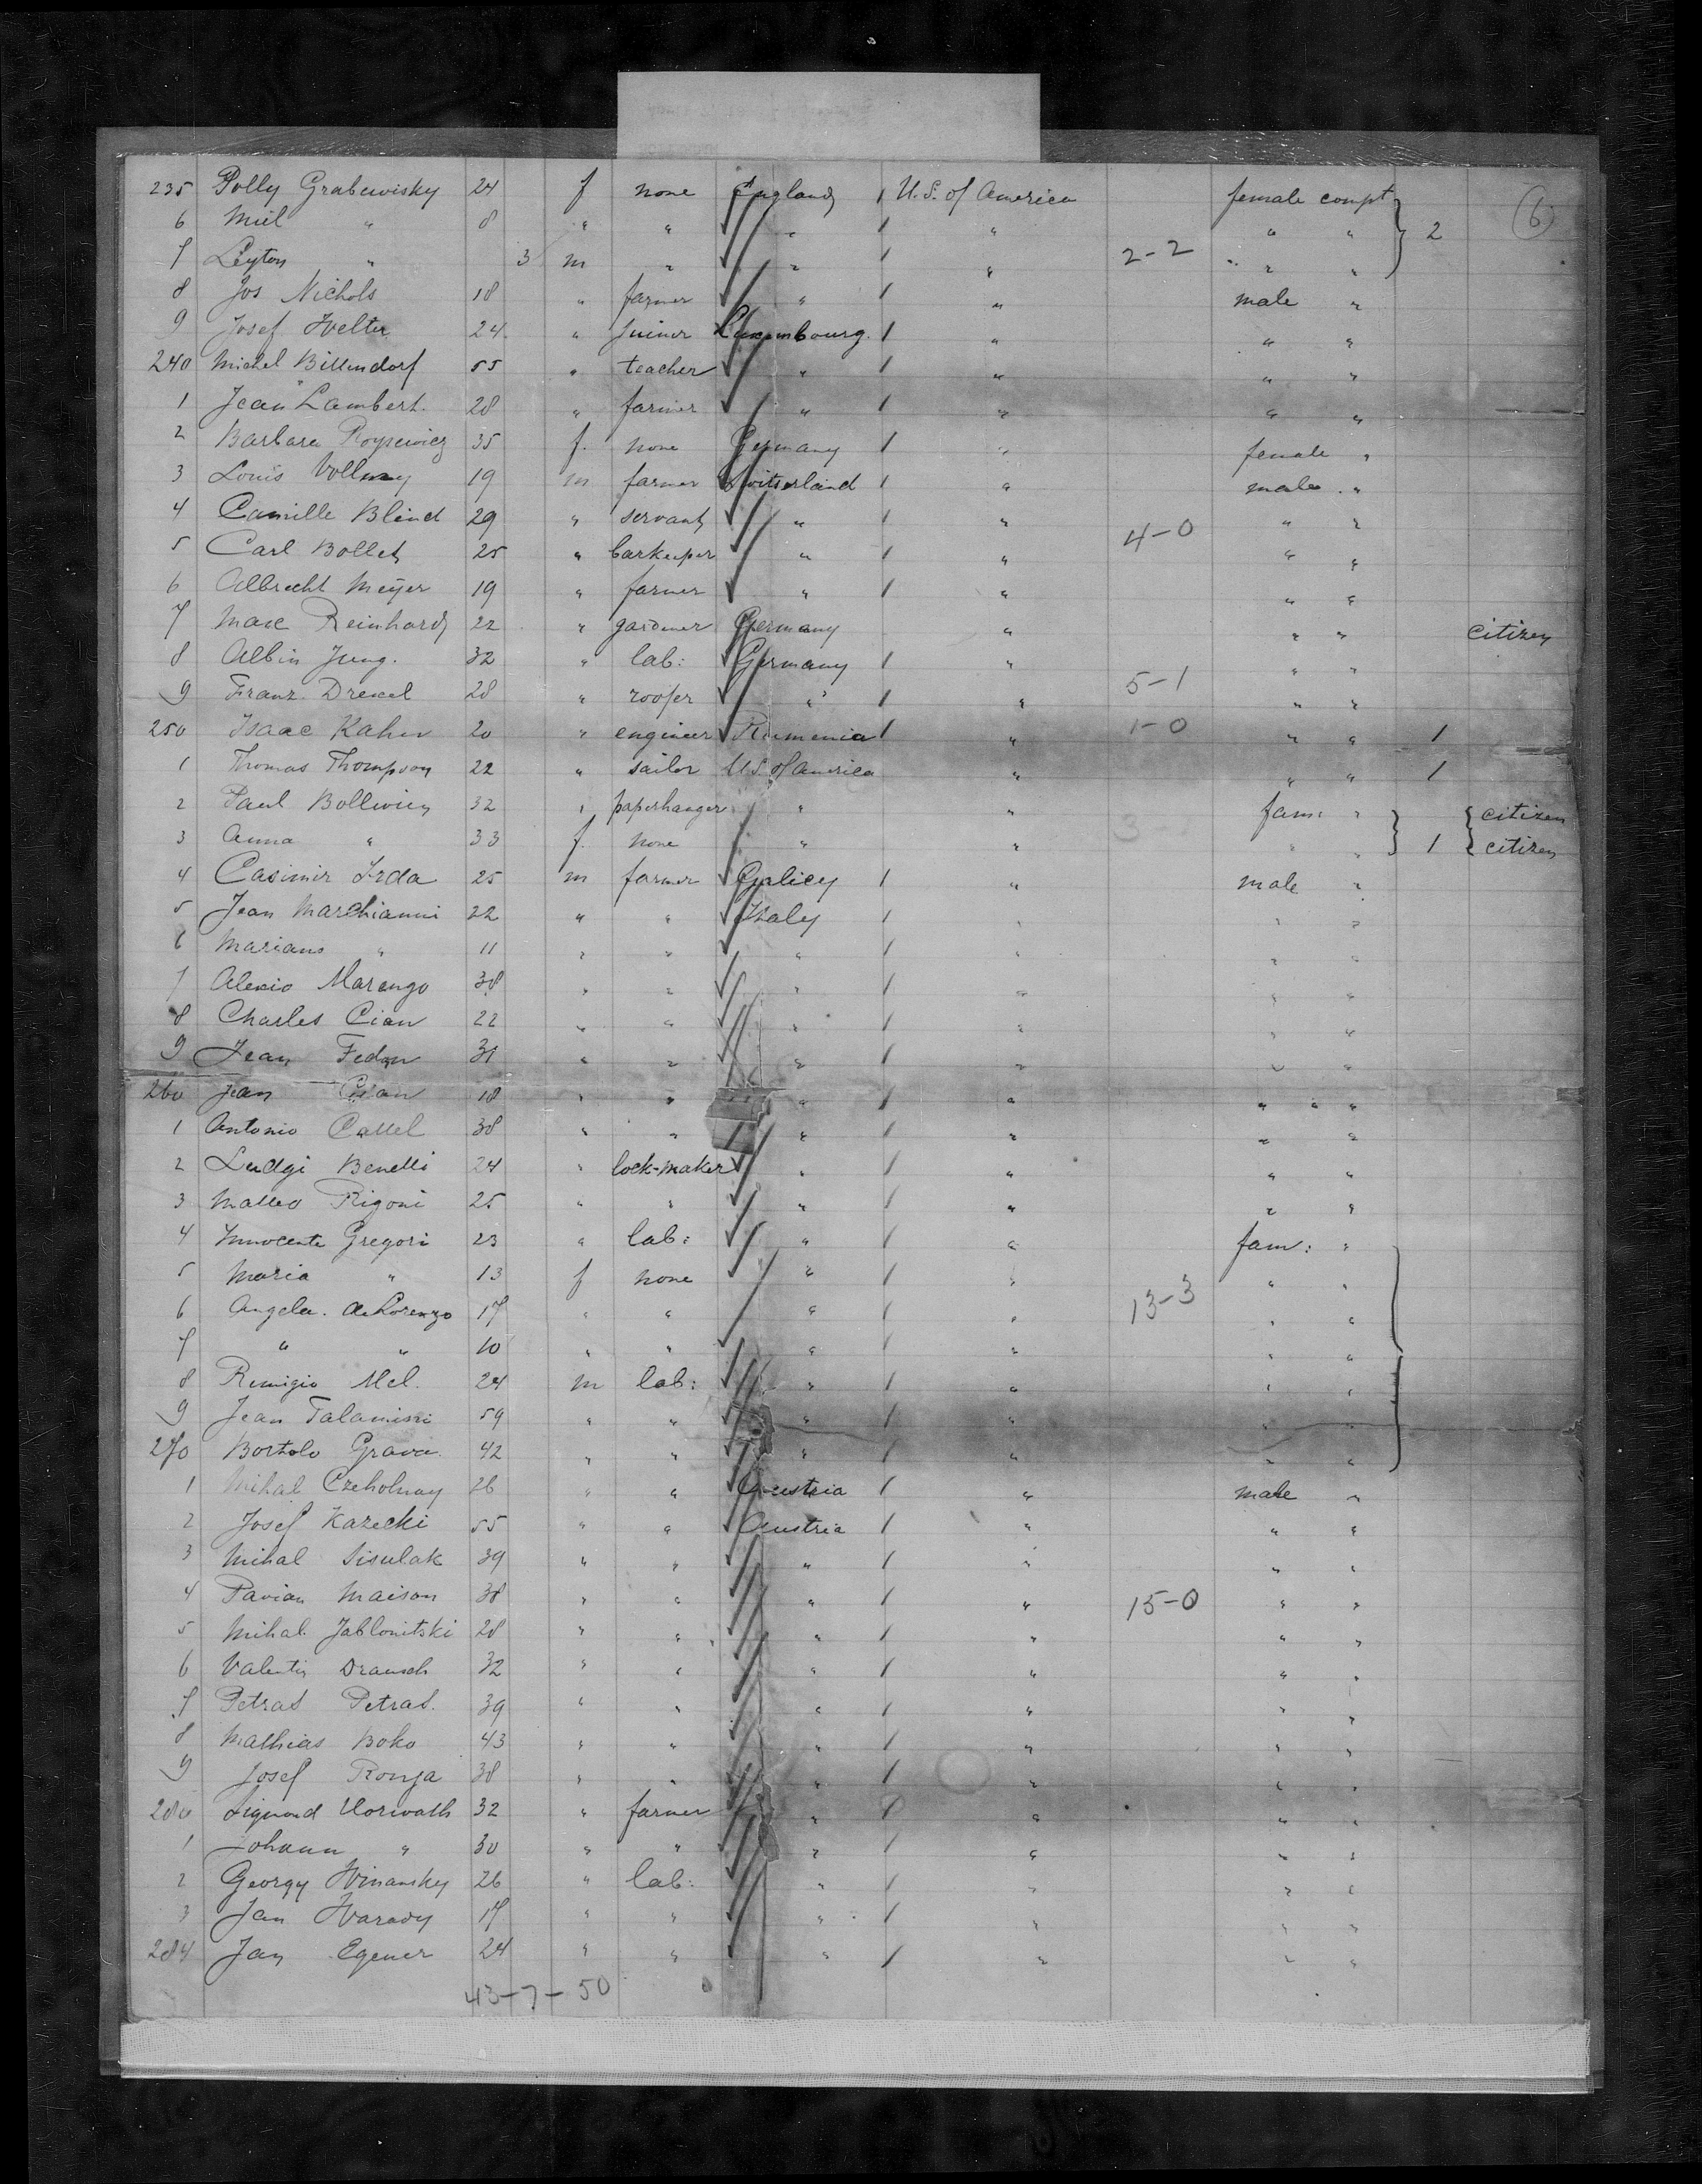 235 Polly Grabewisky 24 f none England / U.S. of America female compt 6
6 Miel " 8 " " " / " " " 2
7 Leyton " 3 m " " / " 2-2 " "
8 Jos Nichols 18 " farmer " / " male "
9 Josef Welter 24 " Juiner Luxembourg. / " " "
240 Michel Billendorf 55 " teacher " / " " "
1 Jean Lambert. 28 " farmer " / " " "
2 Barbara 35 f. none Germany / " female "
3 Louis Vollmy 19 m farmer Switserland / " male "
4 Camille Blind 29 " servant " / " 4-0 " "
5 Carl Bollet 25 " barkeeper " / " " "
6 Albrecht Meyer 19 " farmer " / " " "
7 Max Reinhard 22 " gardner Germany " " " citizen
8 Albin Jung. 32 " lab: Germany / " " "
9 Franz Drexel 28 " roofer " / " 5-1 " "
250 Isaac Kahn 20 " engineer Rumenia / " 1-0 " " 1
1 Thomas Thompson 22 " sailor U.S. of America " " " 1
2 Paul Bollwin 32 " paperhanger " " fam: " citizen
3 Anna " 33 f. none " " 3 " " 1 citizen
4 Casimir Srda 25 m farmer Galicy / " male "
5 Jean Marchianni 22 " " Italy / " " "
6 Mariano " 11 " " " / " " "
7 Alexio Marengo 38 " " " / " " "
8 Charles Cian 22 " " " / " " "
9 Jean Fedon 31 " " " / " " "
260 Jean Cian 18 " " " / " " " "
1 Antonio Cassel 38 " " " / " " "
2 Ludgi Benelli 24 " lock-maker " / " " "
3 Matteo Rigoni 25 " " " / " " "
4 Innocente Gregori 23 " lab: " / " fam: "
5 Maria " 13 f none " / " " "
6 Angela. de Lorenzo 17 " " " / " 13-3 " "
7 " " 10 " " " / " " "
8 Remigio Mel. 24 m lab: " / " " "
9 Jean Talamini 59 " " " / " " "
270 Bortolo Grava 42 " " " / " " "
1 Mihal Czeholnay 26 " " Austria / " male "
2 Josef Kazecki 55 " " Austria / " " "
3 Mihal Sisulak 39 " " " / " " "
4 Pavian Maison 38 " " " / " 15-0 " "
5 Mihal Jablonitski 28 " " " / " " "
6 Valentin Drausch 32 " " " / " " "
7 Petras Petras. 39 " " " / " " "
8 Mathias Boko 43 " " " / " " "
9 Josef Ronja 38 " " " / " " "
280 Sigmund Horwath 32 " farmer " / " " "
1 Johann " 30 " " " / " " "
2 Georgy Winansky 26 " lab: " / " " "
3 Jan Warady 17 " " " / " " "
284 Jan Egener 24 " " " / " " "
43-7-50